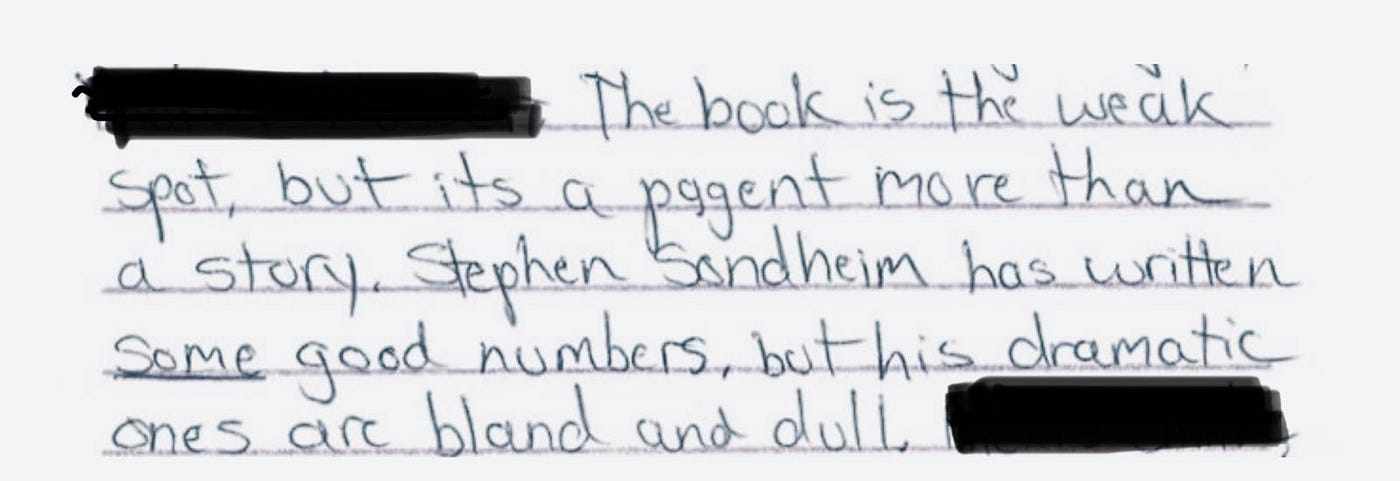 The book is the weak
spot, but its a pagent more than
a story. Stephen Sondheim has written
some good numbers, but his dramatic
ones are bland and dull.